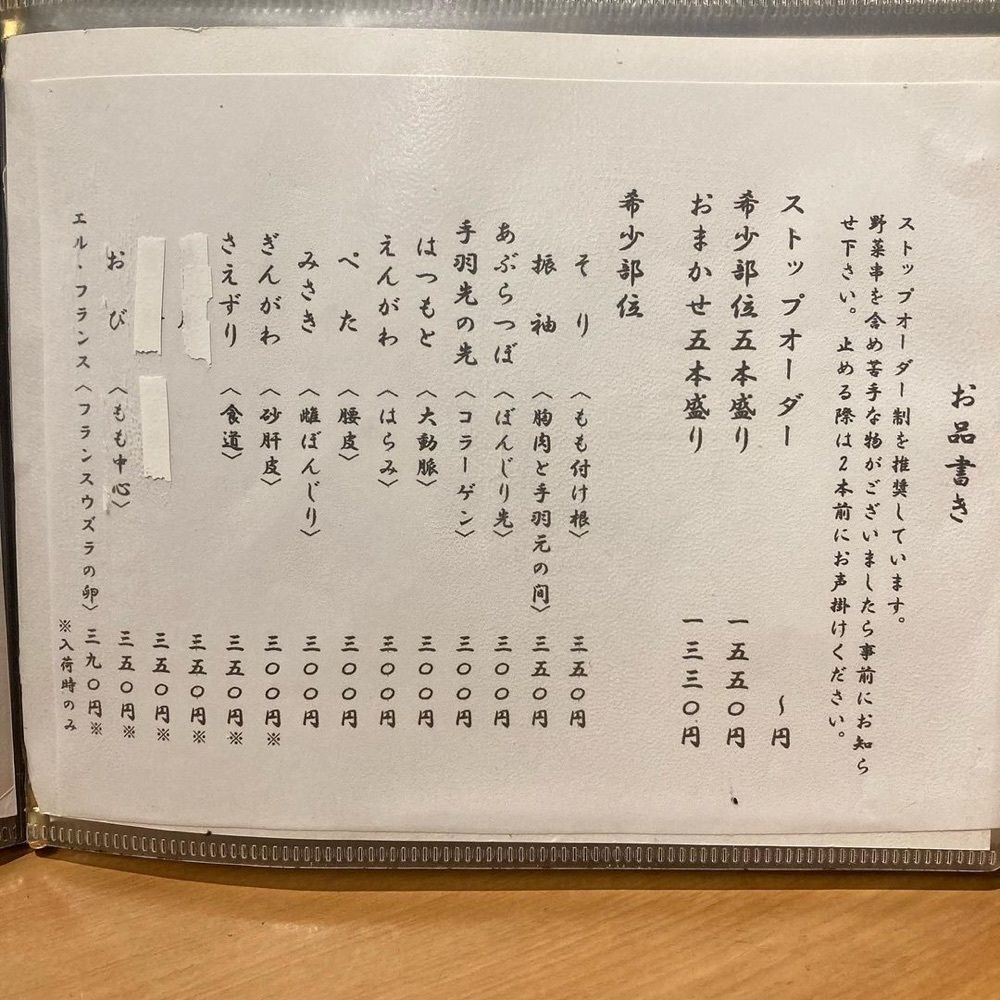 お品書き
ストップオーダー制を推奨しています。
野菜串を含め苦手な物がございましたら事前にお知ら
せ下さい。止める際は2本前にお声掛けください。
ストップオーダー 〜円
希少部位五本盛り 一五五〇円
おまかせ五本盛り 一三三〇円
希少部位
そり〈もも付け根〉三五〇円
振袖〈胸肉と手羽元の間〉三五〇円
あぶらつぼ〈ぼんじり先〉三〇〇円
手羽先の先〈コラーゲン〉三〇〇円
はつもと〈大動脈〉三〇〇円
えんがわ〈はらみ〉三〇〇円
ぺた〈腰皮〉三〇〇円
みさき〈雌ぼんじり〉三〇〇円
ぎんがわ〈砂肝皮〉三〇〇円※
さえずり〈食道〉三五〇円※
三五〇円※
三五〇円※
おび〈もも中心〉三五〇円※
エル・フランス〈フランスウズラの卵〉三九〇円※
※入荷時のみ